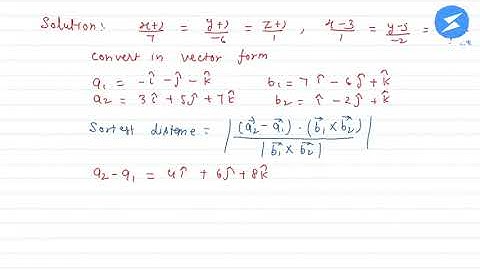 Solution: x+2/7 = y+2/-6 = z+2/1 , x-3/1 = y-5/-2 =
convert in vector form
a₁ = -î - ĵ - k̂ b₁ = 7î - 6ĵ + k̂
a₂ = 3î + 5ĵ + 7k̂ b₂ = î - 2ĵ + k̂
Sortest distence = | (a⃗₂ - a⃗₁) · (b⃗₁ × b⃗₂) / |b⃗₁ × b⃗₂| |
a₂ - a₁ = 4î + 6ĵ + 8k̂